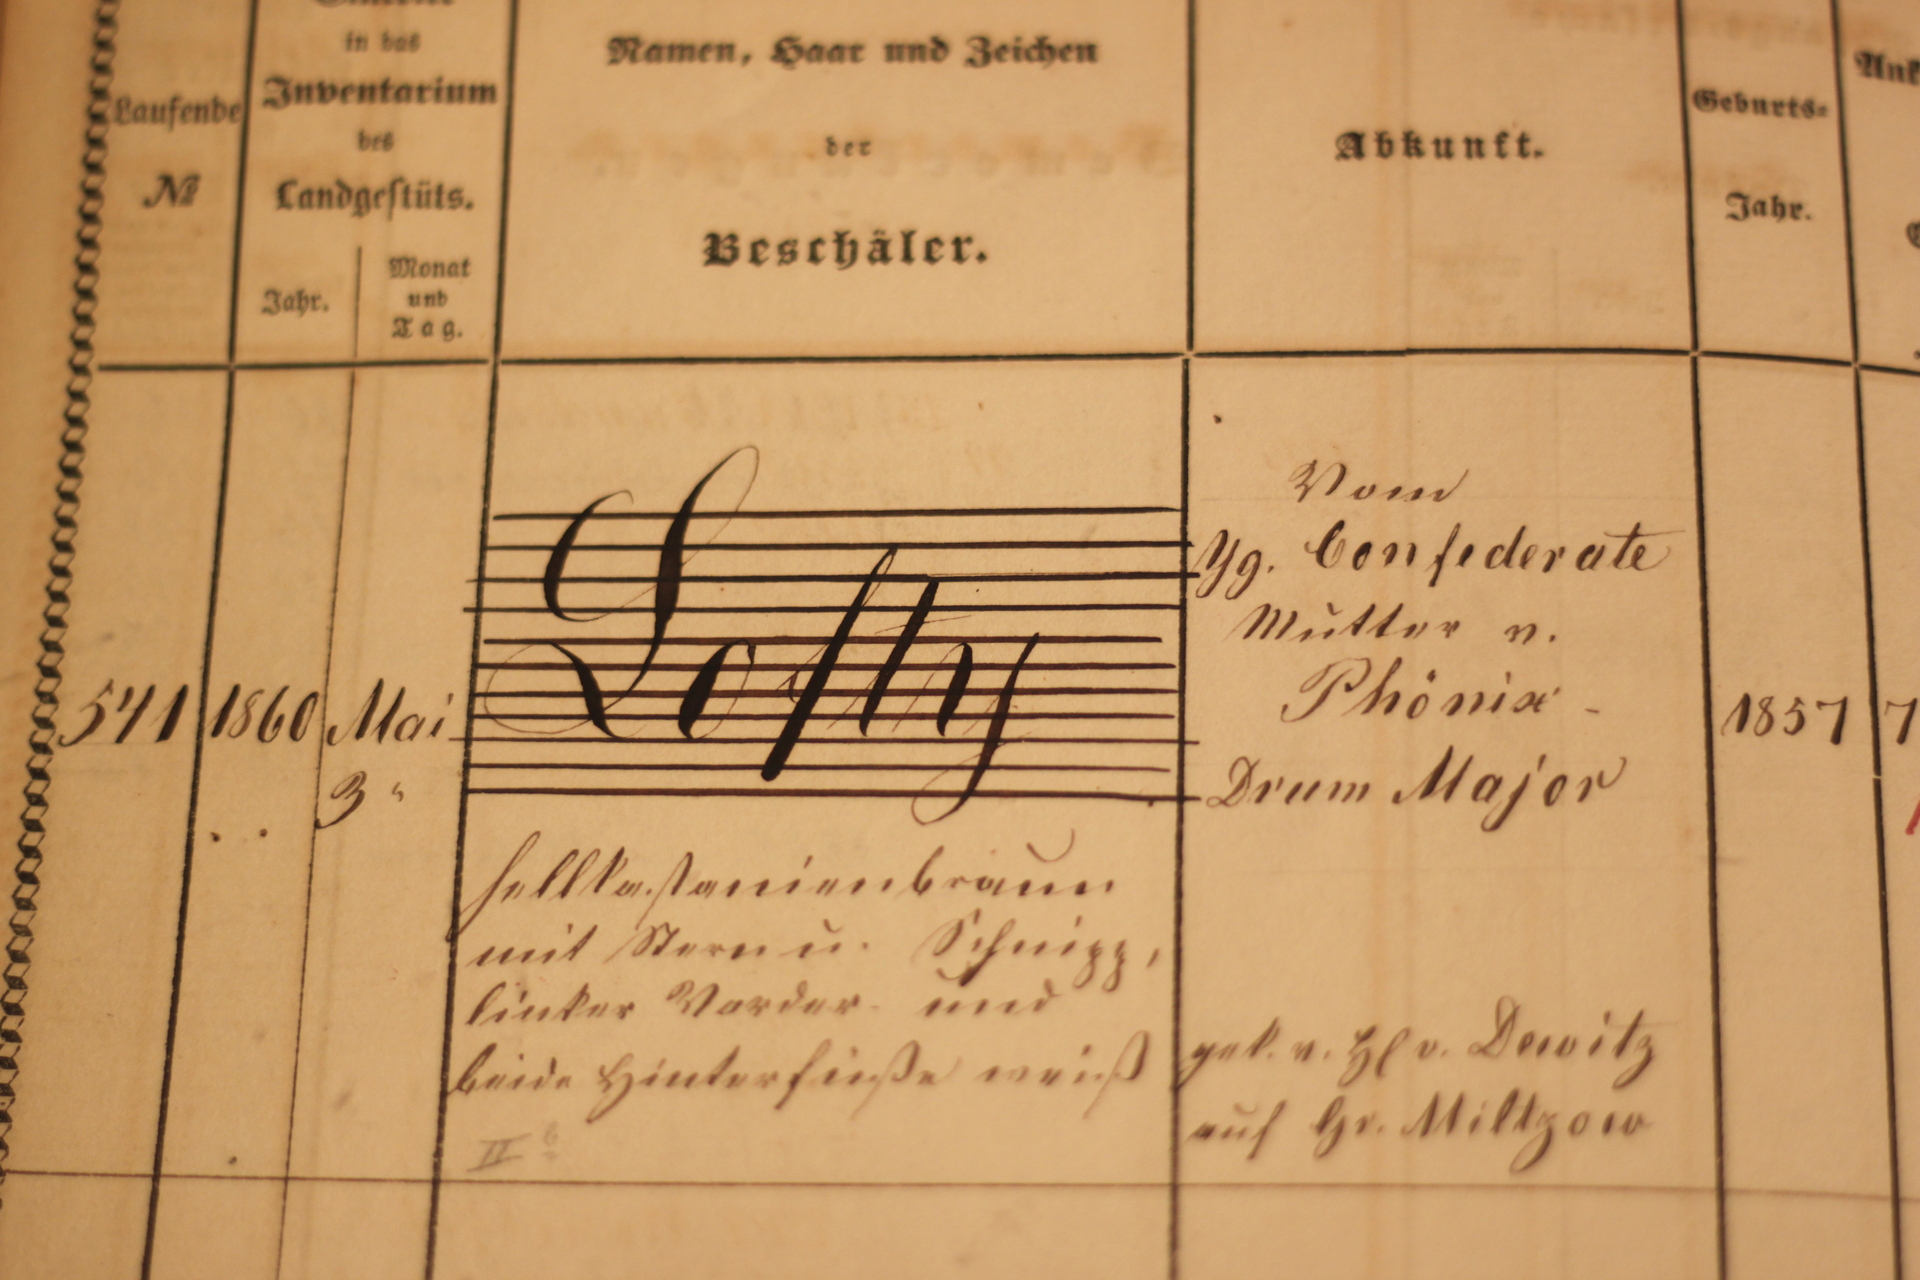 in das
Laufende
№
Inventarium
des
Landgestüts.
Jahr.
Monat
und
Tag.
Namen, Haar und Zeichen
der
Beschäler.
Abkunft.
Geburts-
Jahr.
541
1860
Mai
3"
Lofty
hellkastanienbraun
mit Stern u. Schnipp,
linker Vorder- und
beide Hinterfüße weiß
II
Vom
Yg. Confederate
Mutter v.
Phönix -
Drum Major
gek. v. H v. Dewitz
auf Gr. Miltzow
1857
7